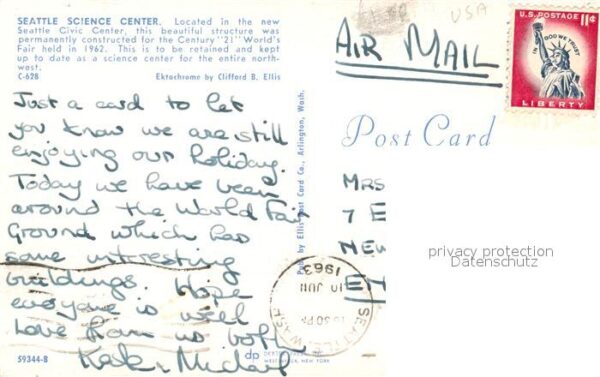 SEATTLE SCIENCE CENTER. Located in the new
Seattle Civic Center, this beautiful structure was
permanently constructed for the Century "21" World's
Fair held in 1962. This is to be retained and kept
up to date as a science center for the entire north-
west.
C-628 Ektachrome by Clifford B. Ellis
Just a card to let
you know we are still
enjoying our holiday.
Today we have been
around the World Fair
Ground which has
some interesting
buildings. Hope
everyone is well
Love from us both
59344-B
Pub. by Ellis Post Card Co., Arlington, Wash.
USA
AIR MAIL
U.S. POSTAGE 11¢
IN GOD WE TRUST
LIBERTY
Post Card
MRS
7 E
NEW
EN
privacy protection
Datenschutz
SEATTLE, WASH.
JUN
1963
dp
WEST NYACK, NEW YORK